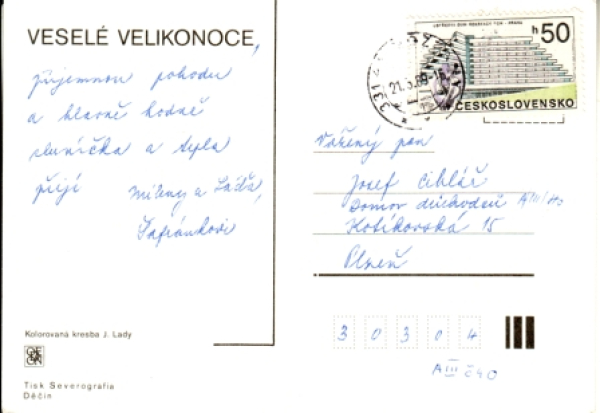 VESELÉ VELIKONOCE,
příjemnou pohodu
a hlavně hodně
sluníčka a tepla
přejí Mileny a Láďa,
Šafránkovi
Kolorovaná kresba J. Lady
Tisk Severografia
Děčín
21.3.89
h50
ČESKOSLOVENSKO
Vážený pan
Josef Cihlář
Domov důchodců AIII/40
Kotíkovská 15
Plzeň
3 0 3 0 4
AIII č 40